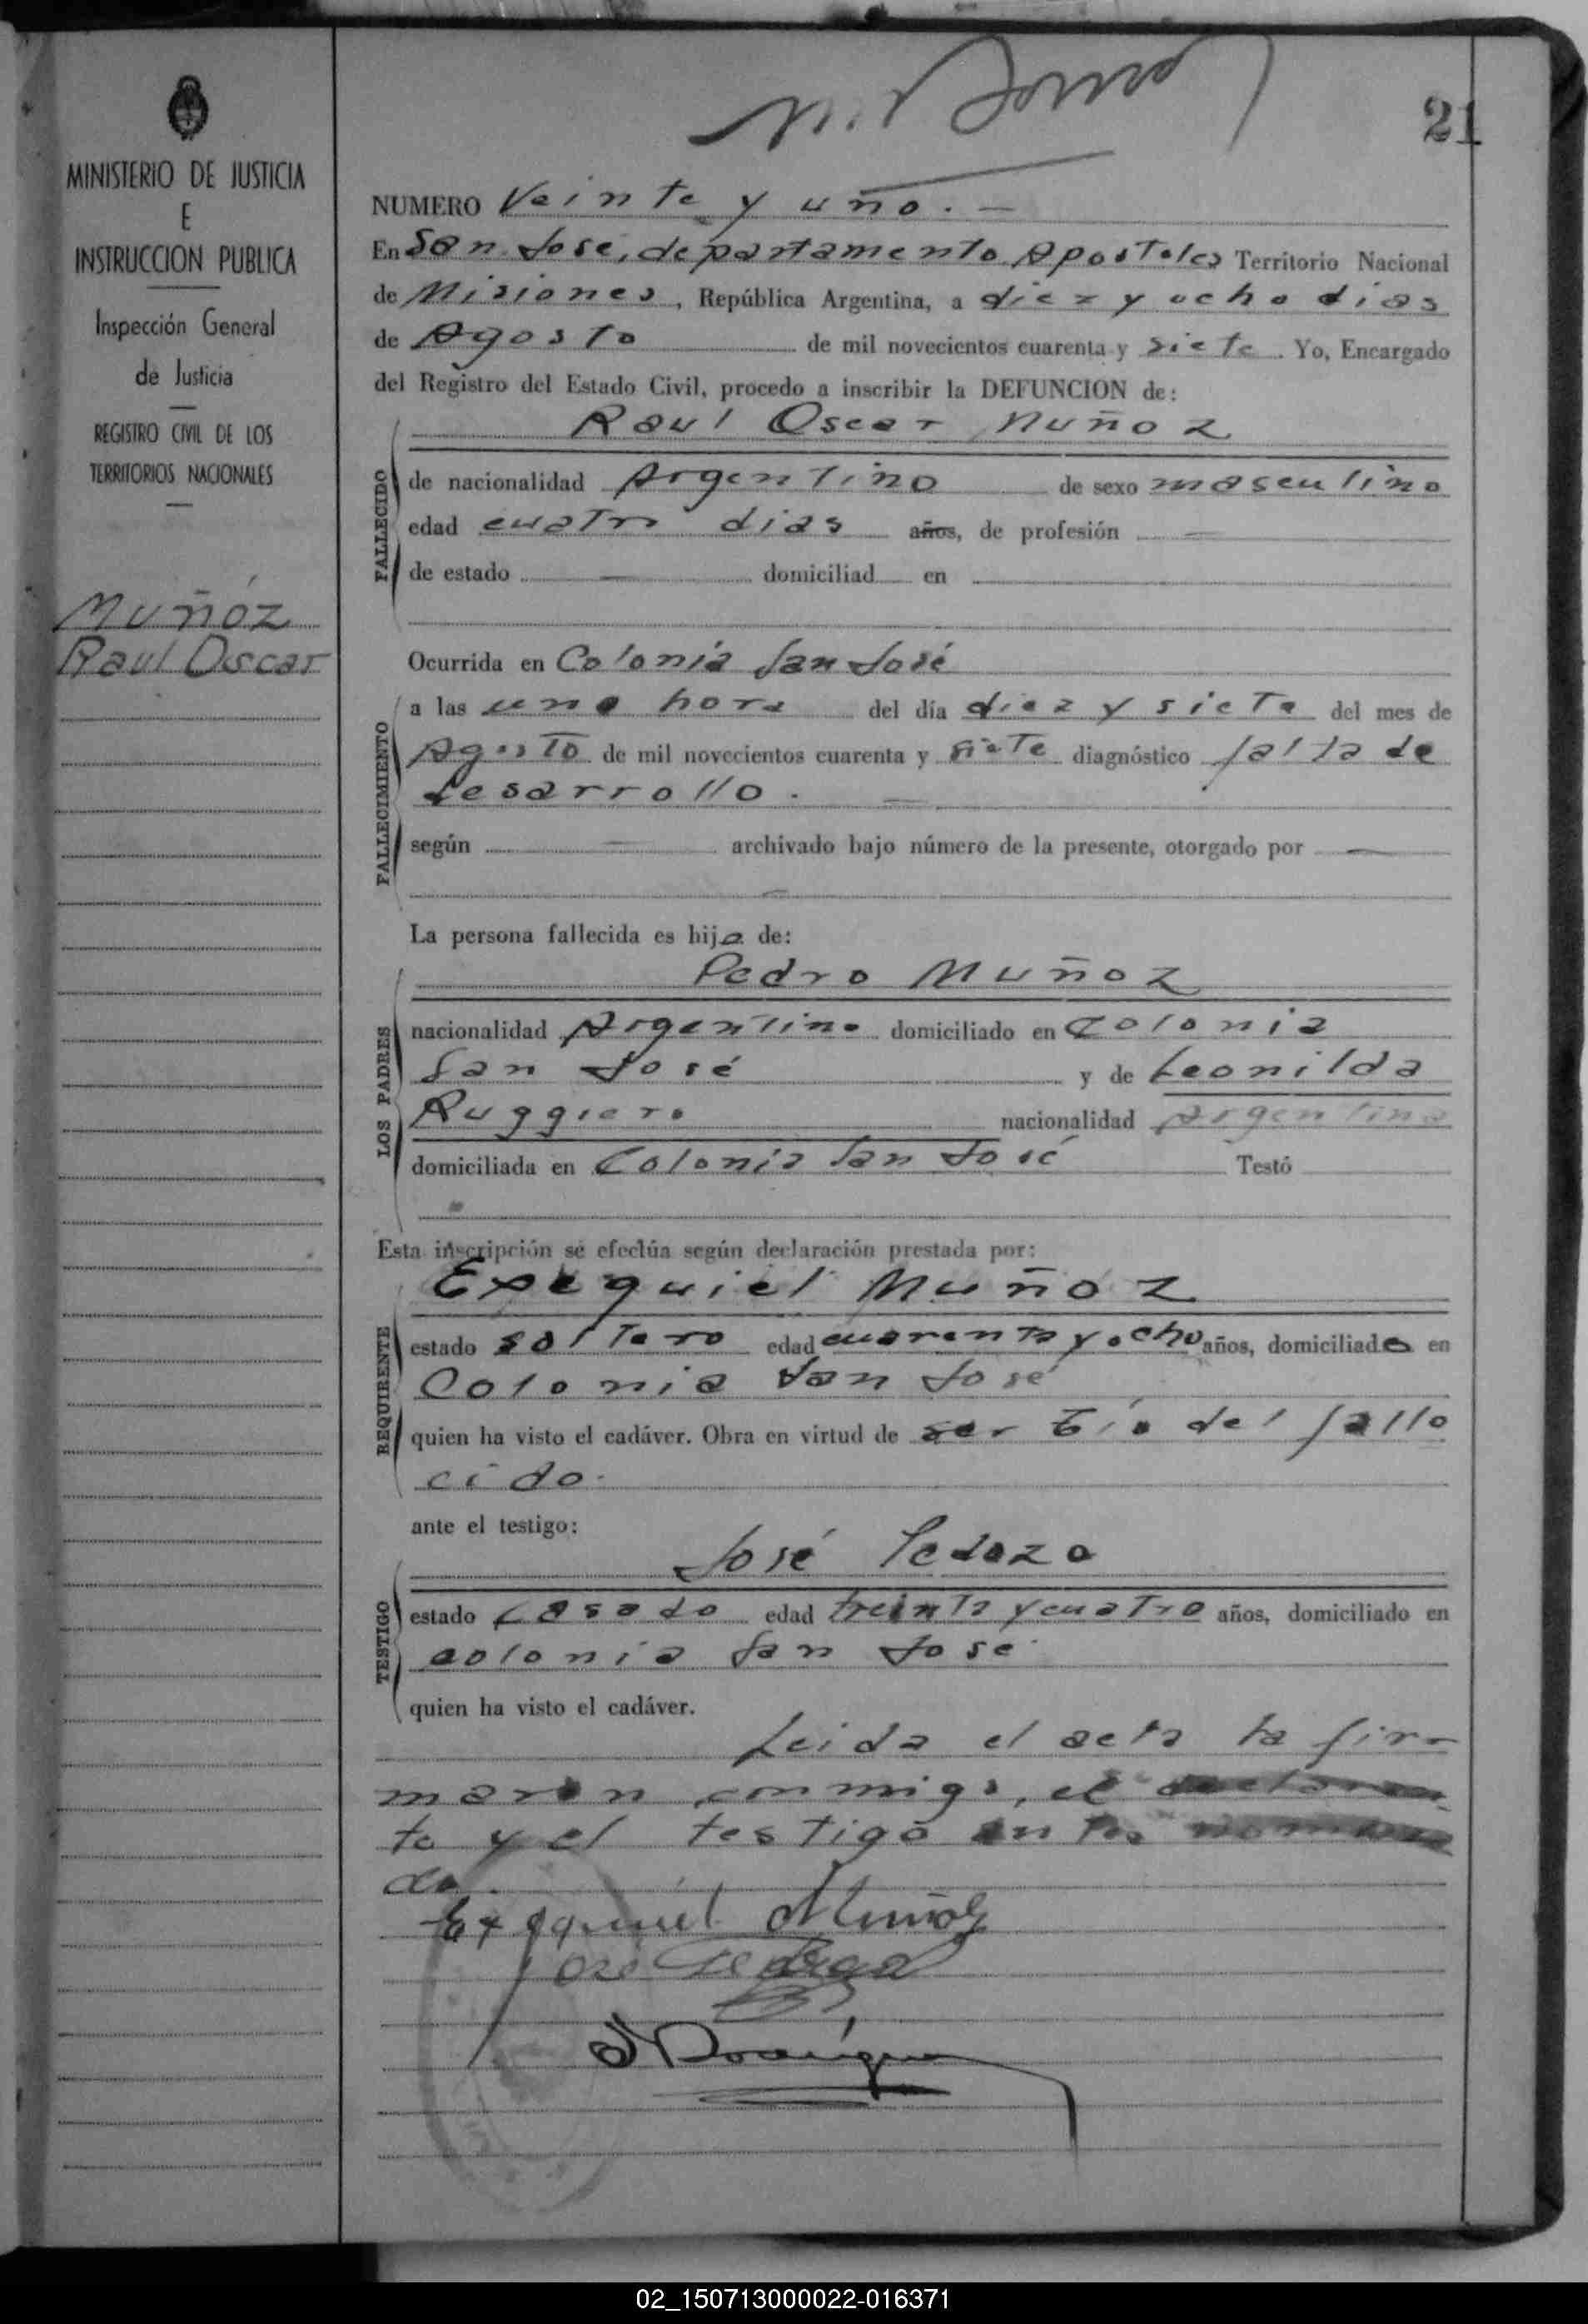 21
MINISTERIO DE JUSTICIA
E
INSTRUCCION PUBLICA
Inspección General
de Justicia
REGISTRO CIVIL DE LOS
TERRITORIOS NACIONALES
Muñóz
Raul Oscar
NUMERO Veinte y uño. —
En San Jose, departamento Apostoles Territorio Nacional
de Misiones, República Argentina, a diez y ocho dias
de Agosto de mil novecientos cuarenta y siete. Yo, Encargado
del Registro del Estado Civil, procedo a inscribir la DEFUNCION de:
Raul Oscar Muñoz
FALLECIDO
de nacionalidad Argentino de sexo masculino
edad cuatro dias años, de profesión —
de estado — domiciliad en
Ocurrida en Colonia San José
FALLECIMIENTO
a las una hora del día diez y siete del mes de
Agosto de mil novecientos cuarenta y siete diagnóstico falta de
desarrollo. —
según — archivado bajo número de la presente, otorgado por —
—
La persona fallecida es hijo de:
LOS PADRES
Pedro Muñoz
nacionalidad Argentino domiciliado en Colonia
San José y de Leonilda
Ruggiero nacionalidad Argentina
domiciliada en Colonia San José Testó
Esta inscripción se efectúa según declaración prestada por:
REQUIRENTE
Exequiel Muñoz
estado soltero edad cuarenta y ocho años, domiciliado en
Colonia San José
quien ha visto el cadáver. Obra en virtud de ser tío del falle
cido.
ante el testigo:
TESTIGO
José Pedozo
estado casado edad treinta y cuatro años, domiciliado en
colonia San José
quien ha visto el cadáver.
Leida el acta la fir-
maron conmigo, el declaran
te y el testigo antes nombra
do.
Exequiel Muñoz
José
02_150713000022-016371